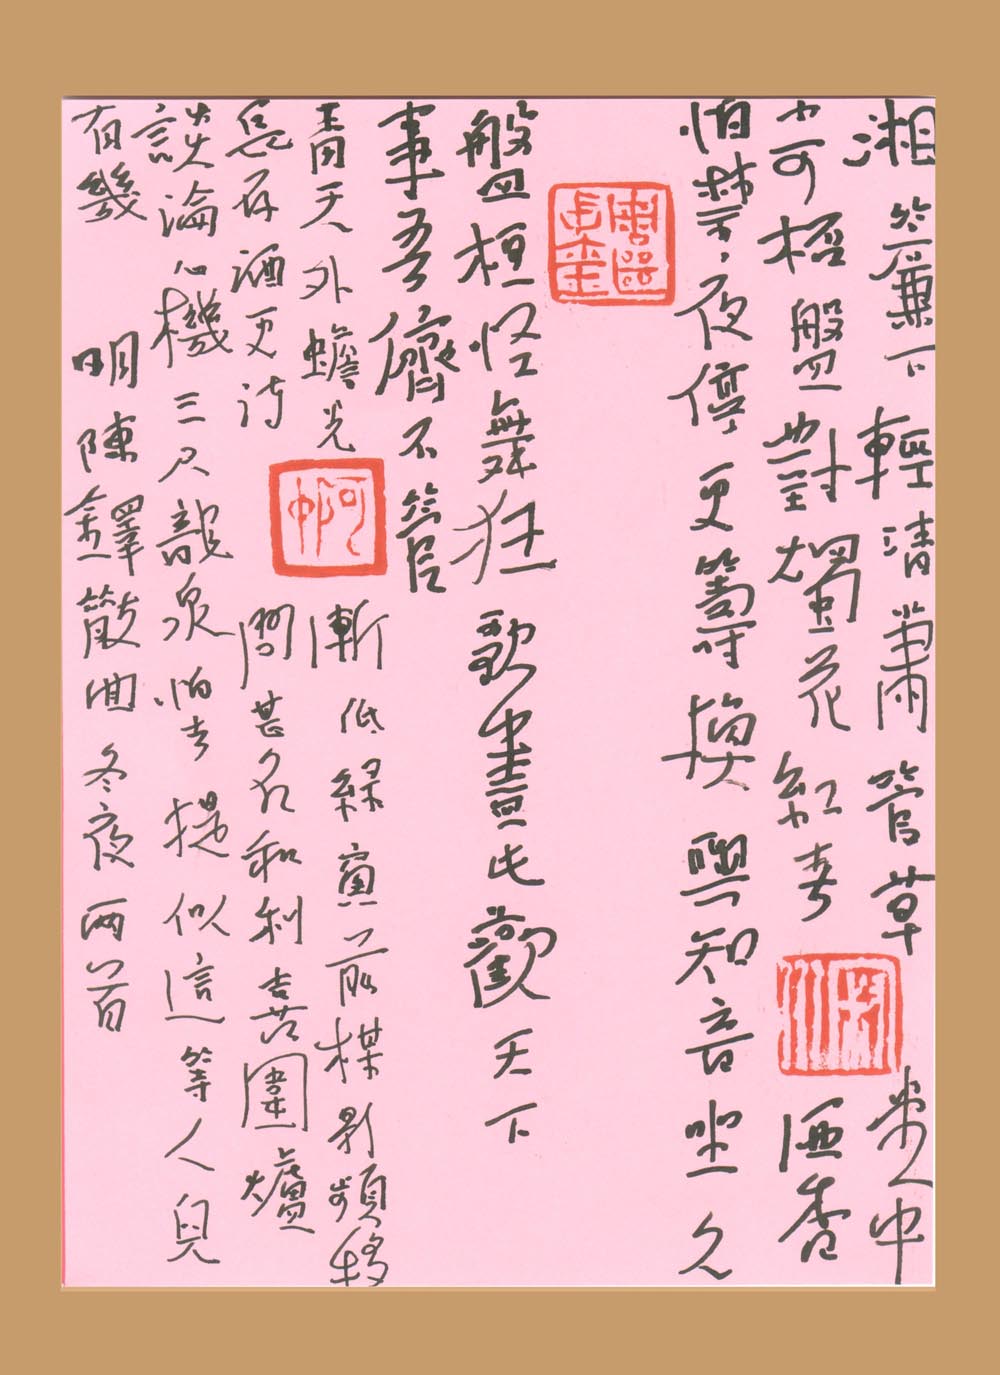 湘簾下輕清蕭管草中
小可杯盤對燭花紅春酒香
怕禁夜停更籌換與知音坐久
盤桓怪舞狂歌盡此歡天下
事吾儕不管
青天外蟾光漸低綠窗前楳影頻移
存酒更詩問甚名和利圍爐
談論心機三尺龍泉怕去提似這等人兒
有幾 明陳鐸散曲冬夜兩首